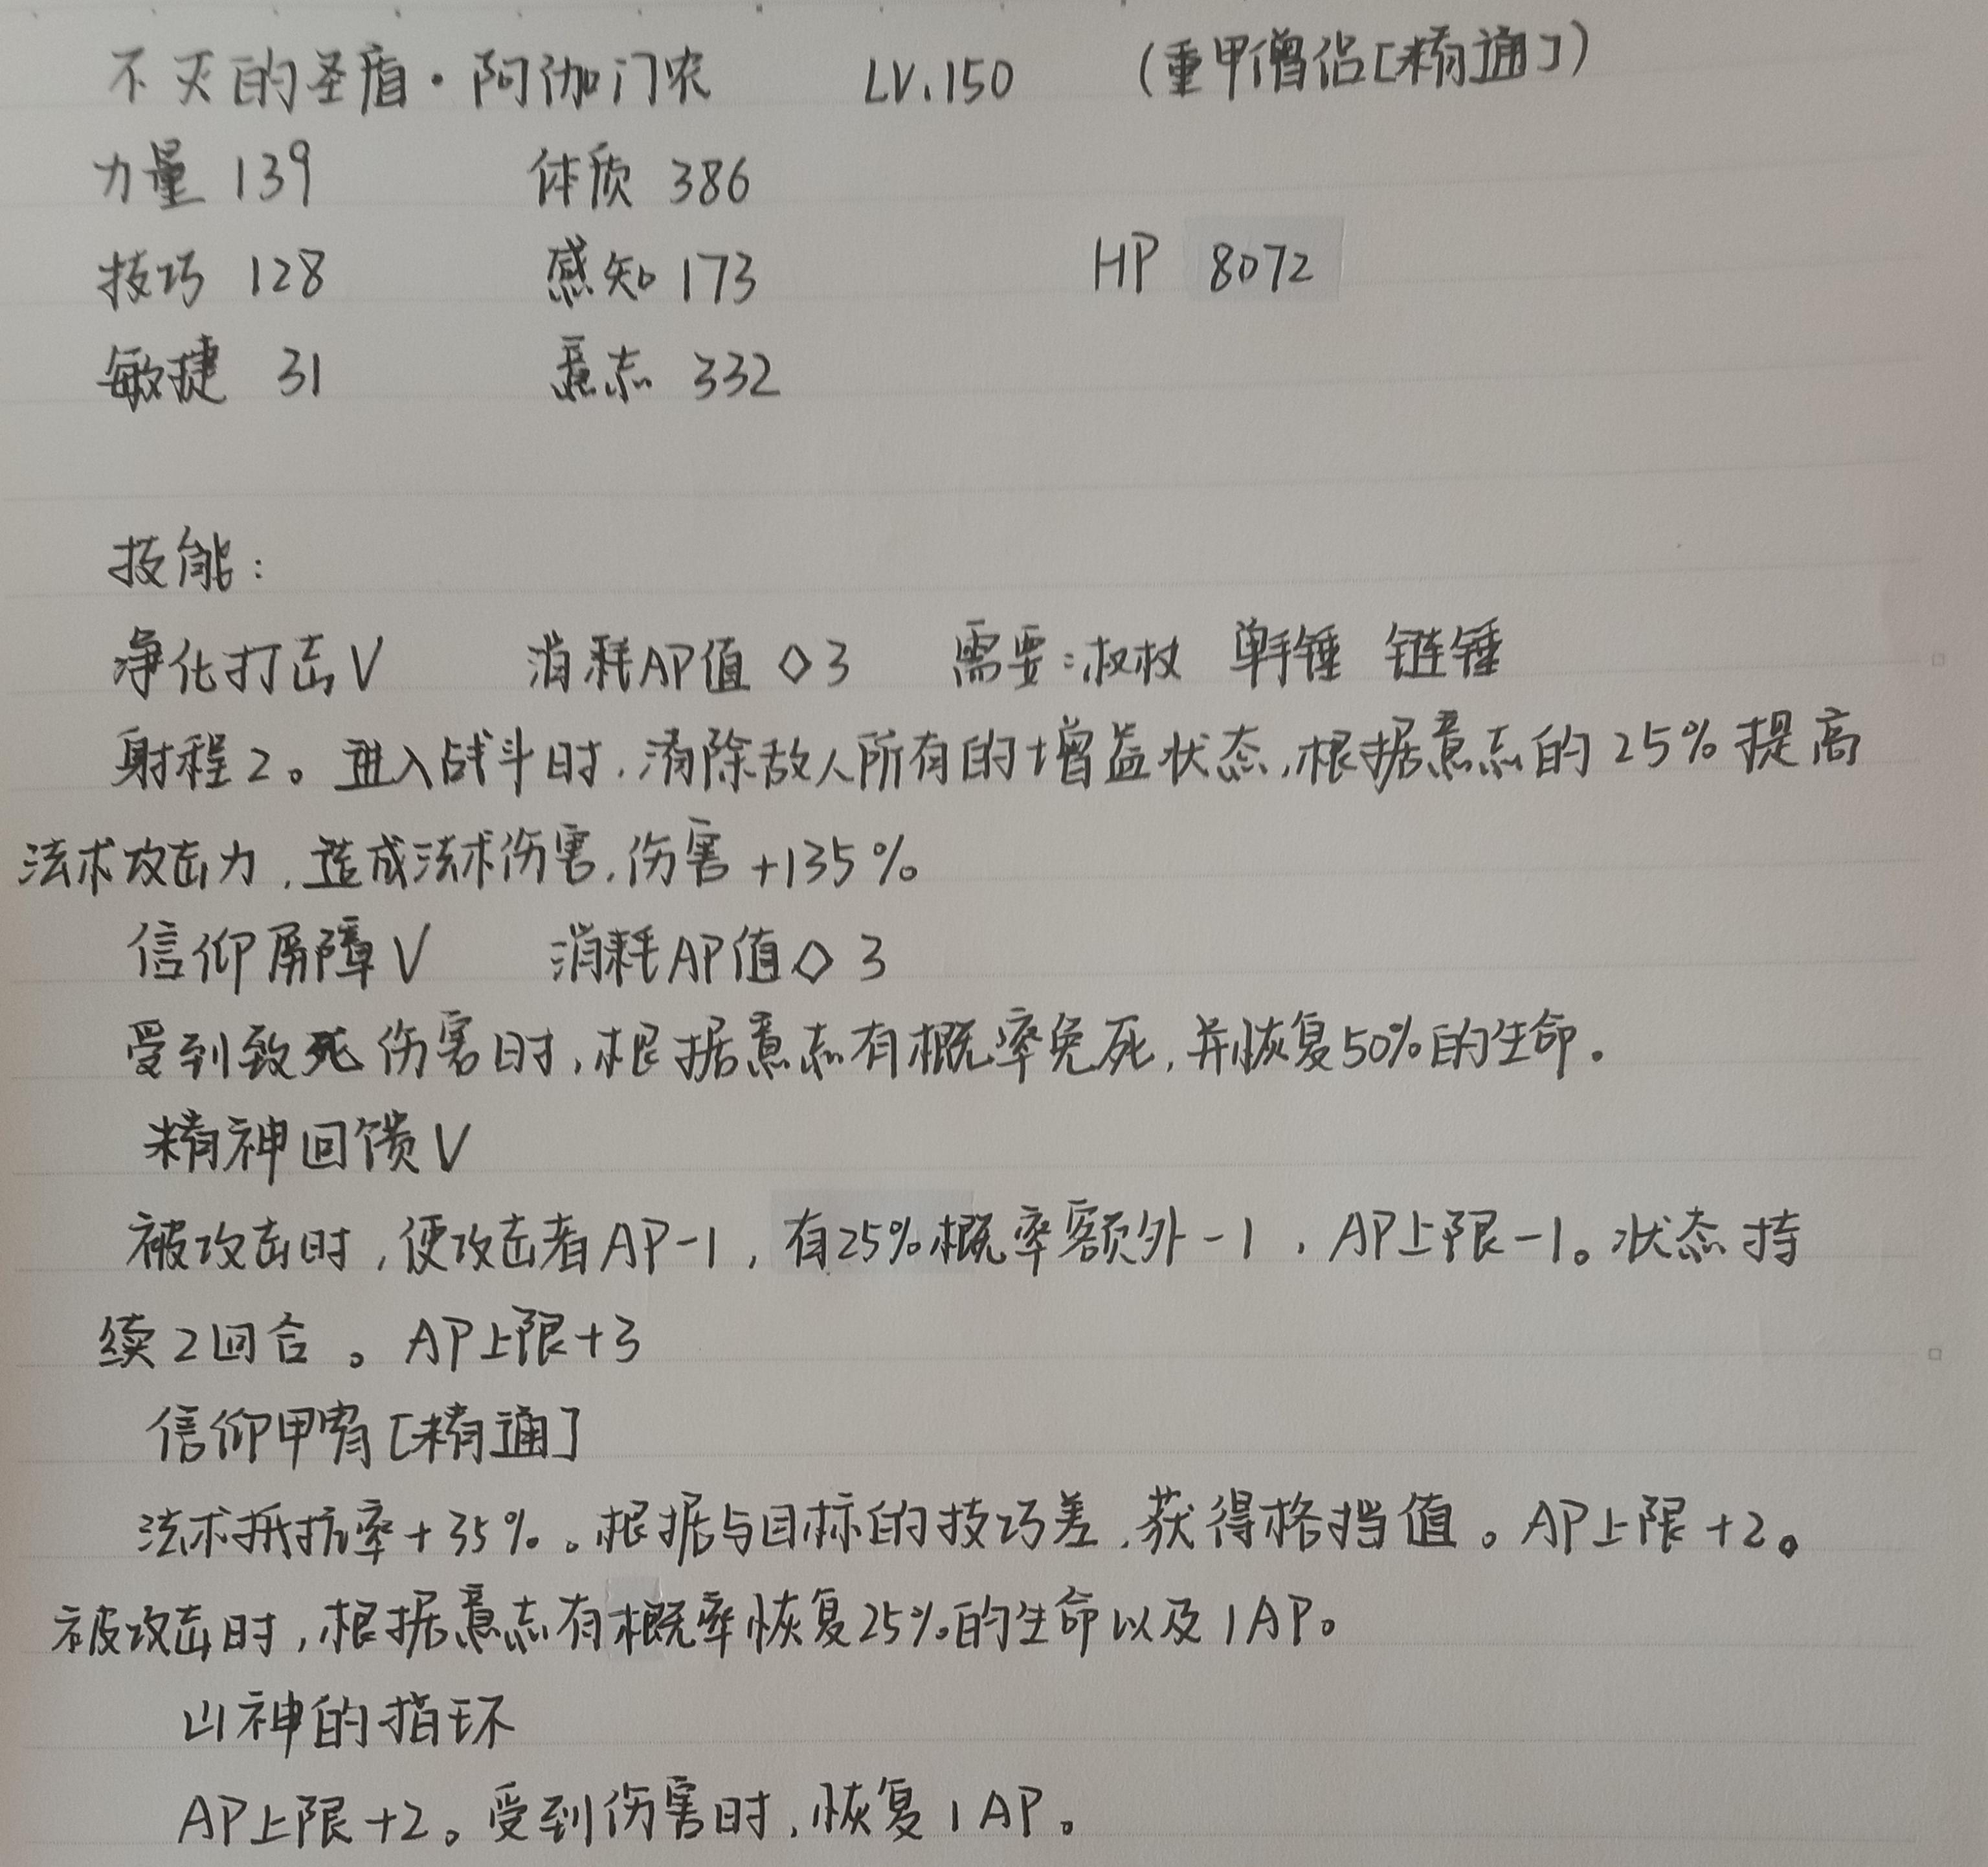 不灭的圣盾·阿伽门农 LV.150 (重甲僧侣[精通])
力量 139 体质 386
技巧 128 感知 173 HP 8072
敏捷 31 意志 332
技能:
净化打击V 消耗AP值◇3 需要:权杖 单手锤 链锤
射程2。进入战斗时,消除敌人所有的增益状态,根据意志的25%提高
法术攻击力,造成法术伤害,伤害+135%
信仰屏障V 消耗AP值◇3
受到致死伤害时,根据意志有概率免死,并恢复50%的生命.
精神回馈V
被攻击时,使攻击者AP-1,有25%概率额外-1,AP上限-1。状态持
续2回合。AP上限+3
信仰甲胄[精通]
法术抵抗率+35%。根据与目标的技巧差,获得格挡值。AP上限+2。
被攻击时,根据意志有概率恢复25%的生命以及1AP。
山神的指环
AP上限+2。受到伤害时,恢复1AP。